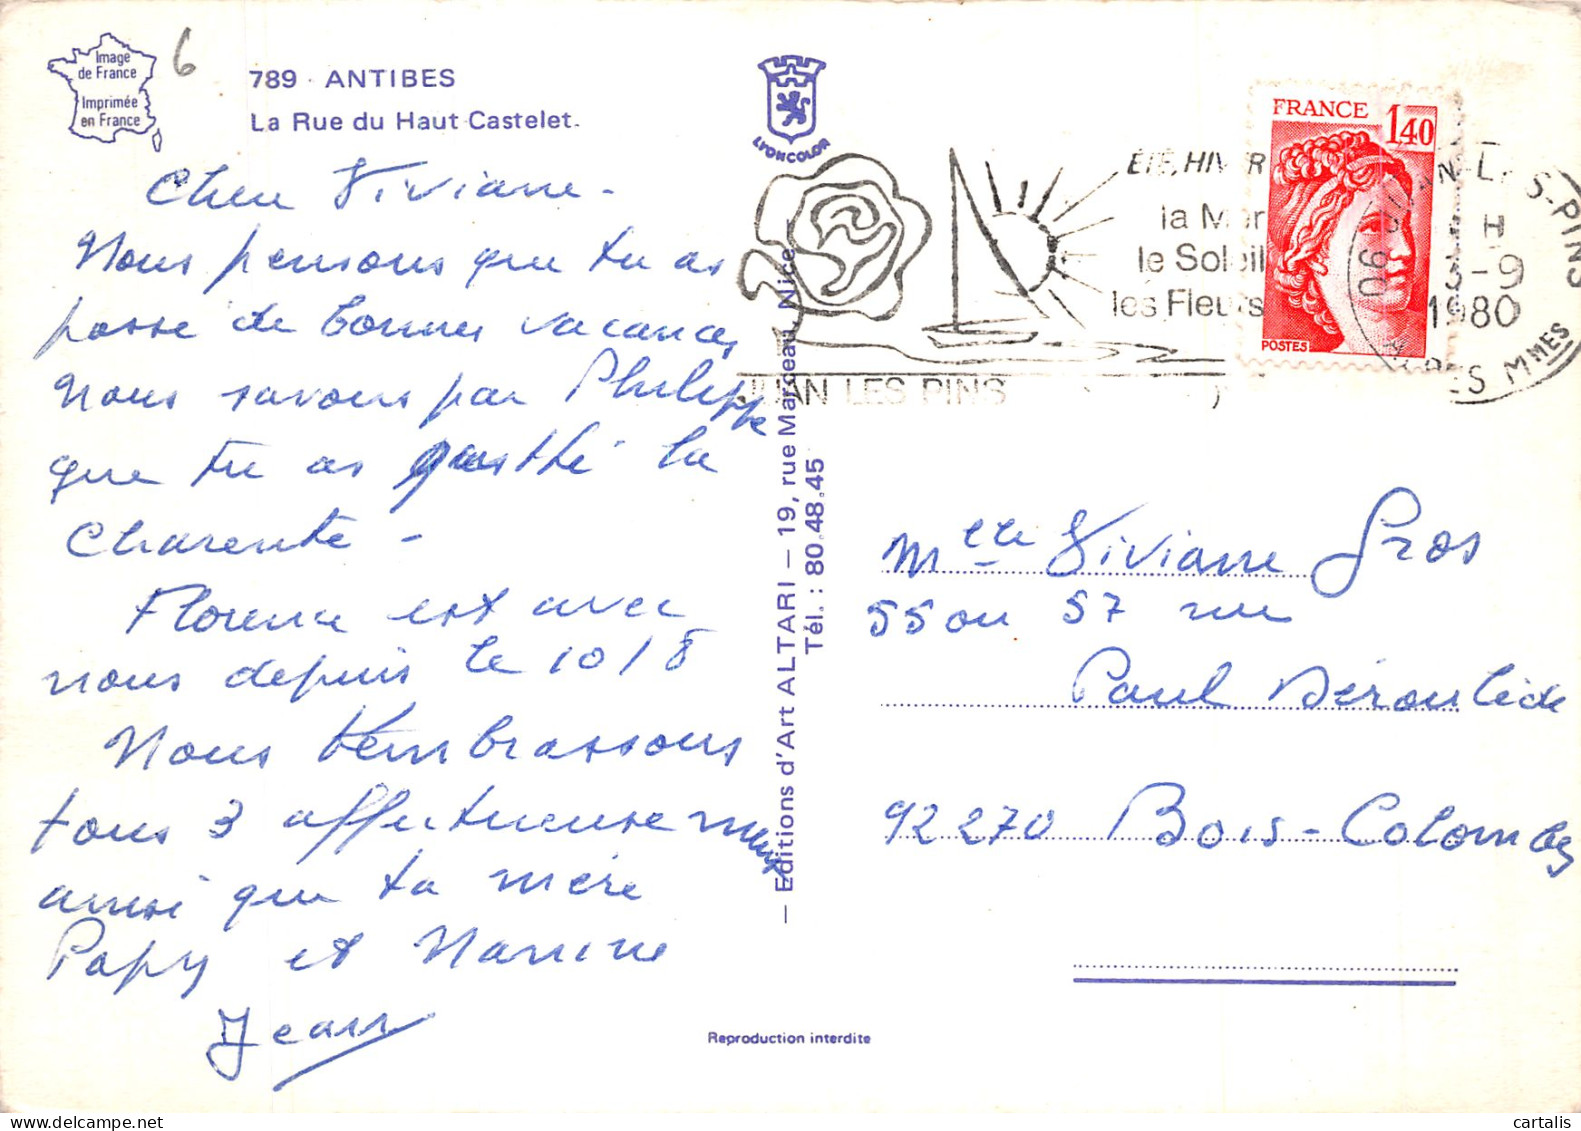 Image
de France
Imprimée
en France
6
789 - ANTIBES
La Rue du Haut Castelet.
LYONCOLOR
Chere Viviane -
Nous pensons que tu as
passé de bonnes vacances
Nous savons par Philippe
que tu as quitté la
Charente -
Florence est avec
nous depuis le 10/8
Nous t'embrassons
tous 3 affectueusement
ainsi que ta mère
Papy et Nanine
Jean
— Editions d'Art ALTARI — 19, rue Marceau, Nice
Tél. : 80.48.45
Reproduction interdite
ÉTÉ, HIVER
la Mer
le Soleil
les Fleurs
JUAN LES PINS
FRANCE 1,40
POSTES
06 JUAN-LES-PINS
H
3-9
1980
ALPES MMES
Melle Viviane Gros
55 ou 57 rue
Paul Déroulède
92270 Bois-Colombes
cartalis